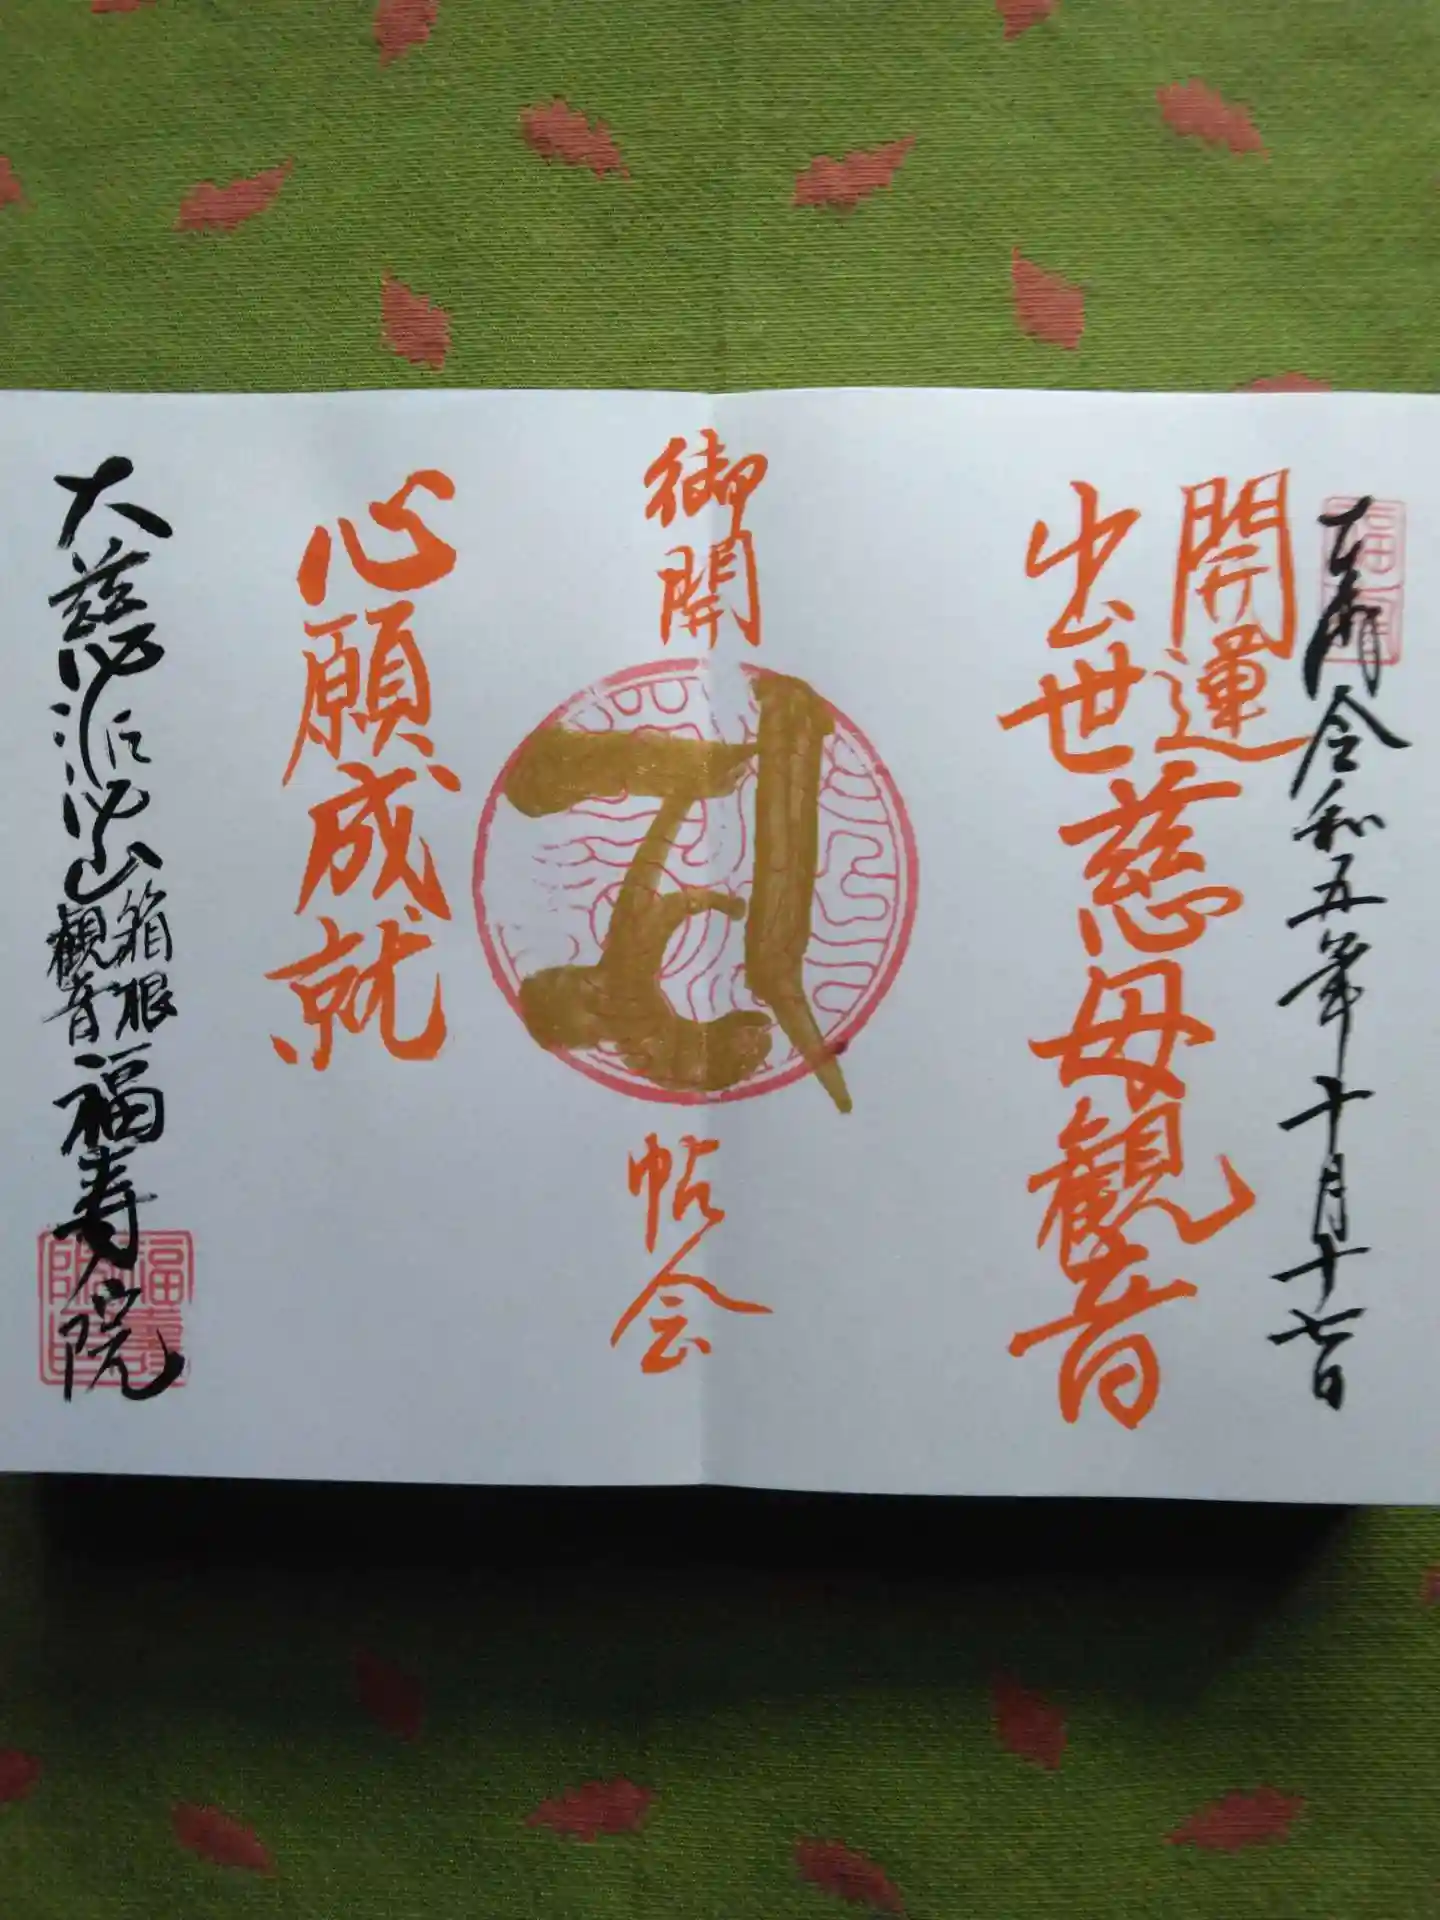 奉拝 令和五年十月十七日
開運
出世
慈母観音
御開
帖会
心願成就
大慈悲山
箱根
観音
福寿院